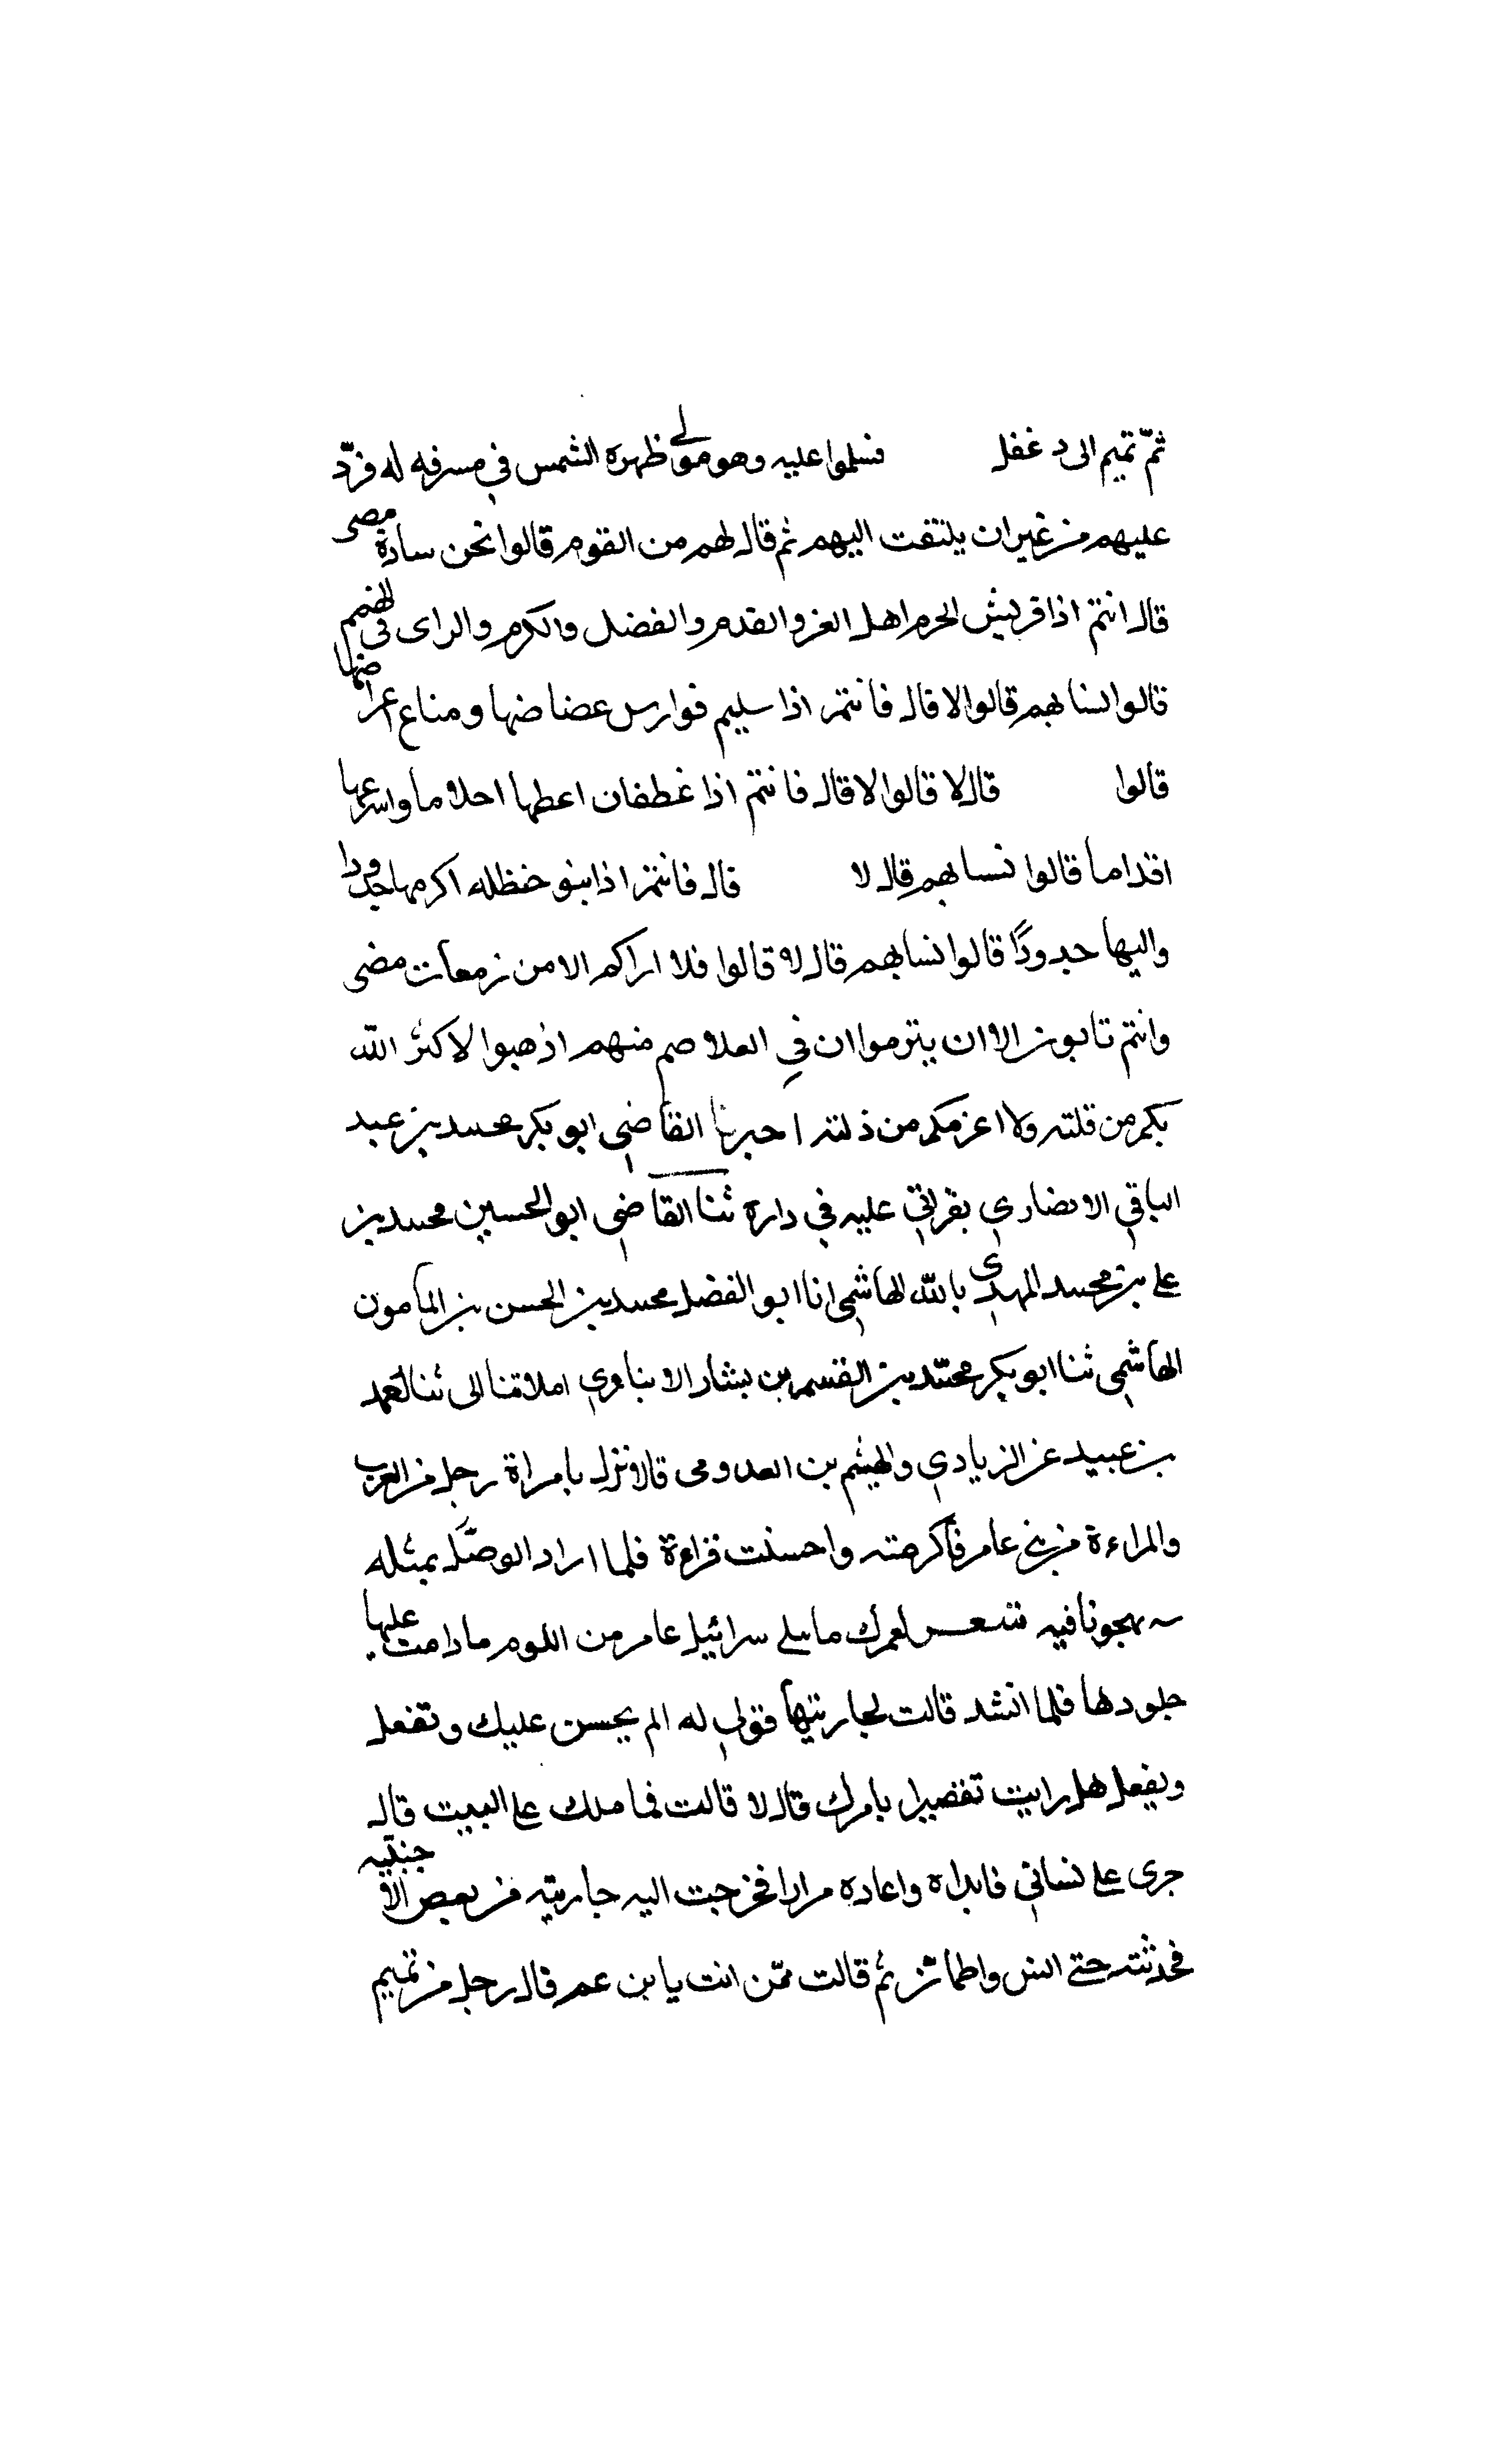 ثمّ تميم الى دغفل فسلموا عليه وهو مولي ظهره الشمس في مسرفه له فردّ
عليهم من غير ان يلتفت اليهم ثم قال لهم من القوم قالوا نحن سادة مصى
قال انتم اذا قريش الحرم اهل العز والقدم والفضل والكرم والراى في
قالوا لسنا بهم قالوا لا قال فانتم اذا سليم فوارس عضاضها ومناع اعراضها
قالوا قال لا قالوا لا قال فانتم اذا غطفان اعظها احلاما واسرعها
اقداما قالوا لسنا بهم قال لا قال فانتم اذا بنو حنظله اكرمها جدودا
واليها حدودًا قالوا لسنا بهم قال لا قالوا فلا اراكم الا من زمعات مضى
وانتم تابون الا ان يترموا ان في منهم اذهبوا لا كثر الله
بكم من قلته ولا اعزمكم من ذلته احبرنا القاضي ابو بكر محمد بن عبد
الباقي الانضاري بقراتي عليه في داره ثنا القاضي ابو الحسين محمد بن
علي بن محمد المهدي بالله الهاشمي انا ابو الفضل محمد بن الحسن بن المأمون
الهاشمي ثنا ابو بكر محمّد بن القسم بن بشار الانباوري املاقنا الى ثنا
بن عبيد عن الزيادي والهيثم بن قالا نزل بامراة رجل من العرب
والمراءة من بني عامر فأكرمته واحسنت قراءة فلما اراد الوصّل بمثله
يهجونا فيه شعر لعمرك سرائيل عامر من اللوم مادامت عليها
جلودها فلما انشد قالت لجاريتها قولي له الم يحسن عليك وتفعل
ويفعل هل رايت تقضيرا بامرك قال لا قالت فما ملك على البيت قال
جرى على لساني فابداه واعاده مرارا فخرجت اليه جاريته من بعض الاجنبيه
فحدثته حتى انس واطمأن ثم قالت ممّن انت يا بن عم قال رجل من تميم